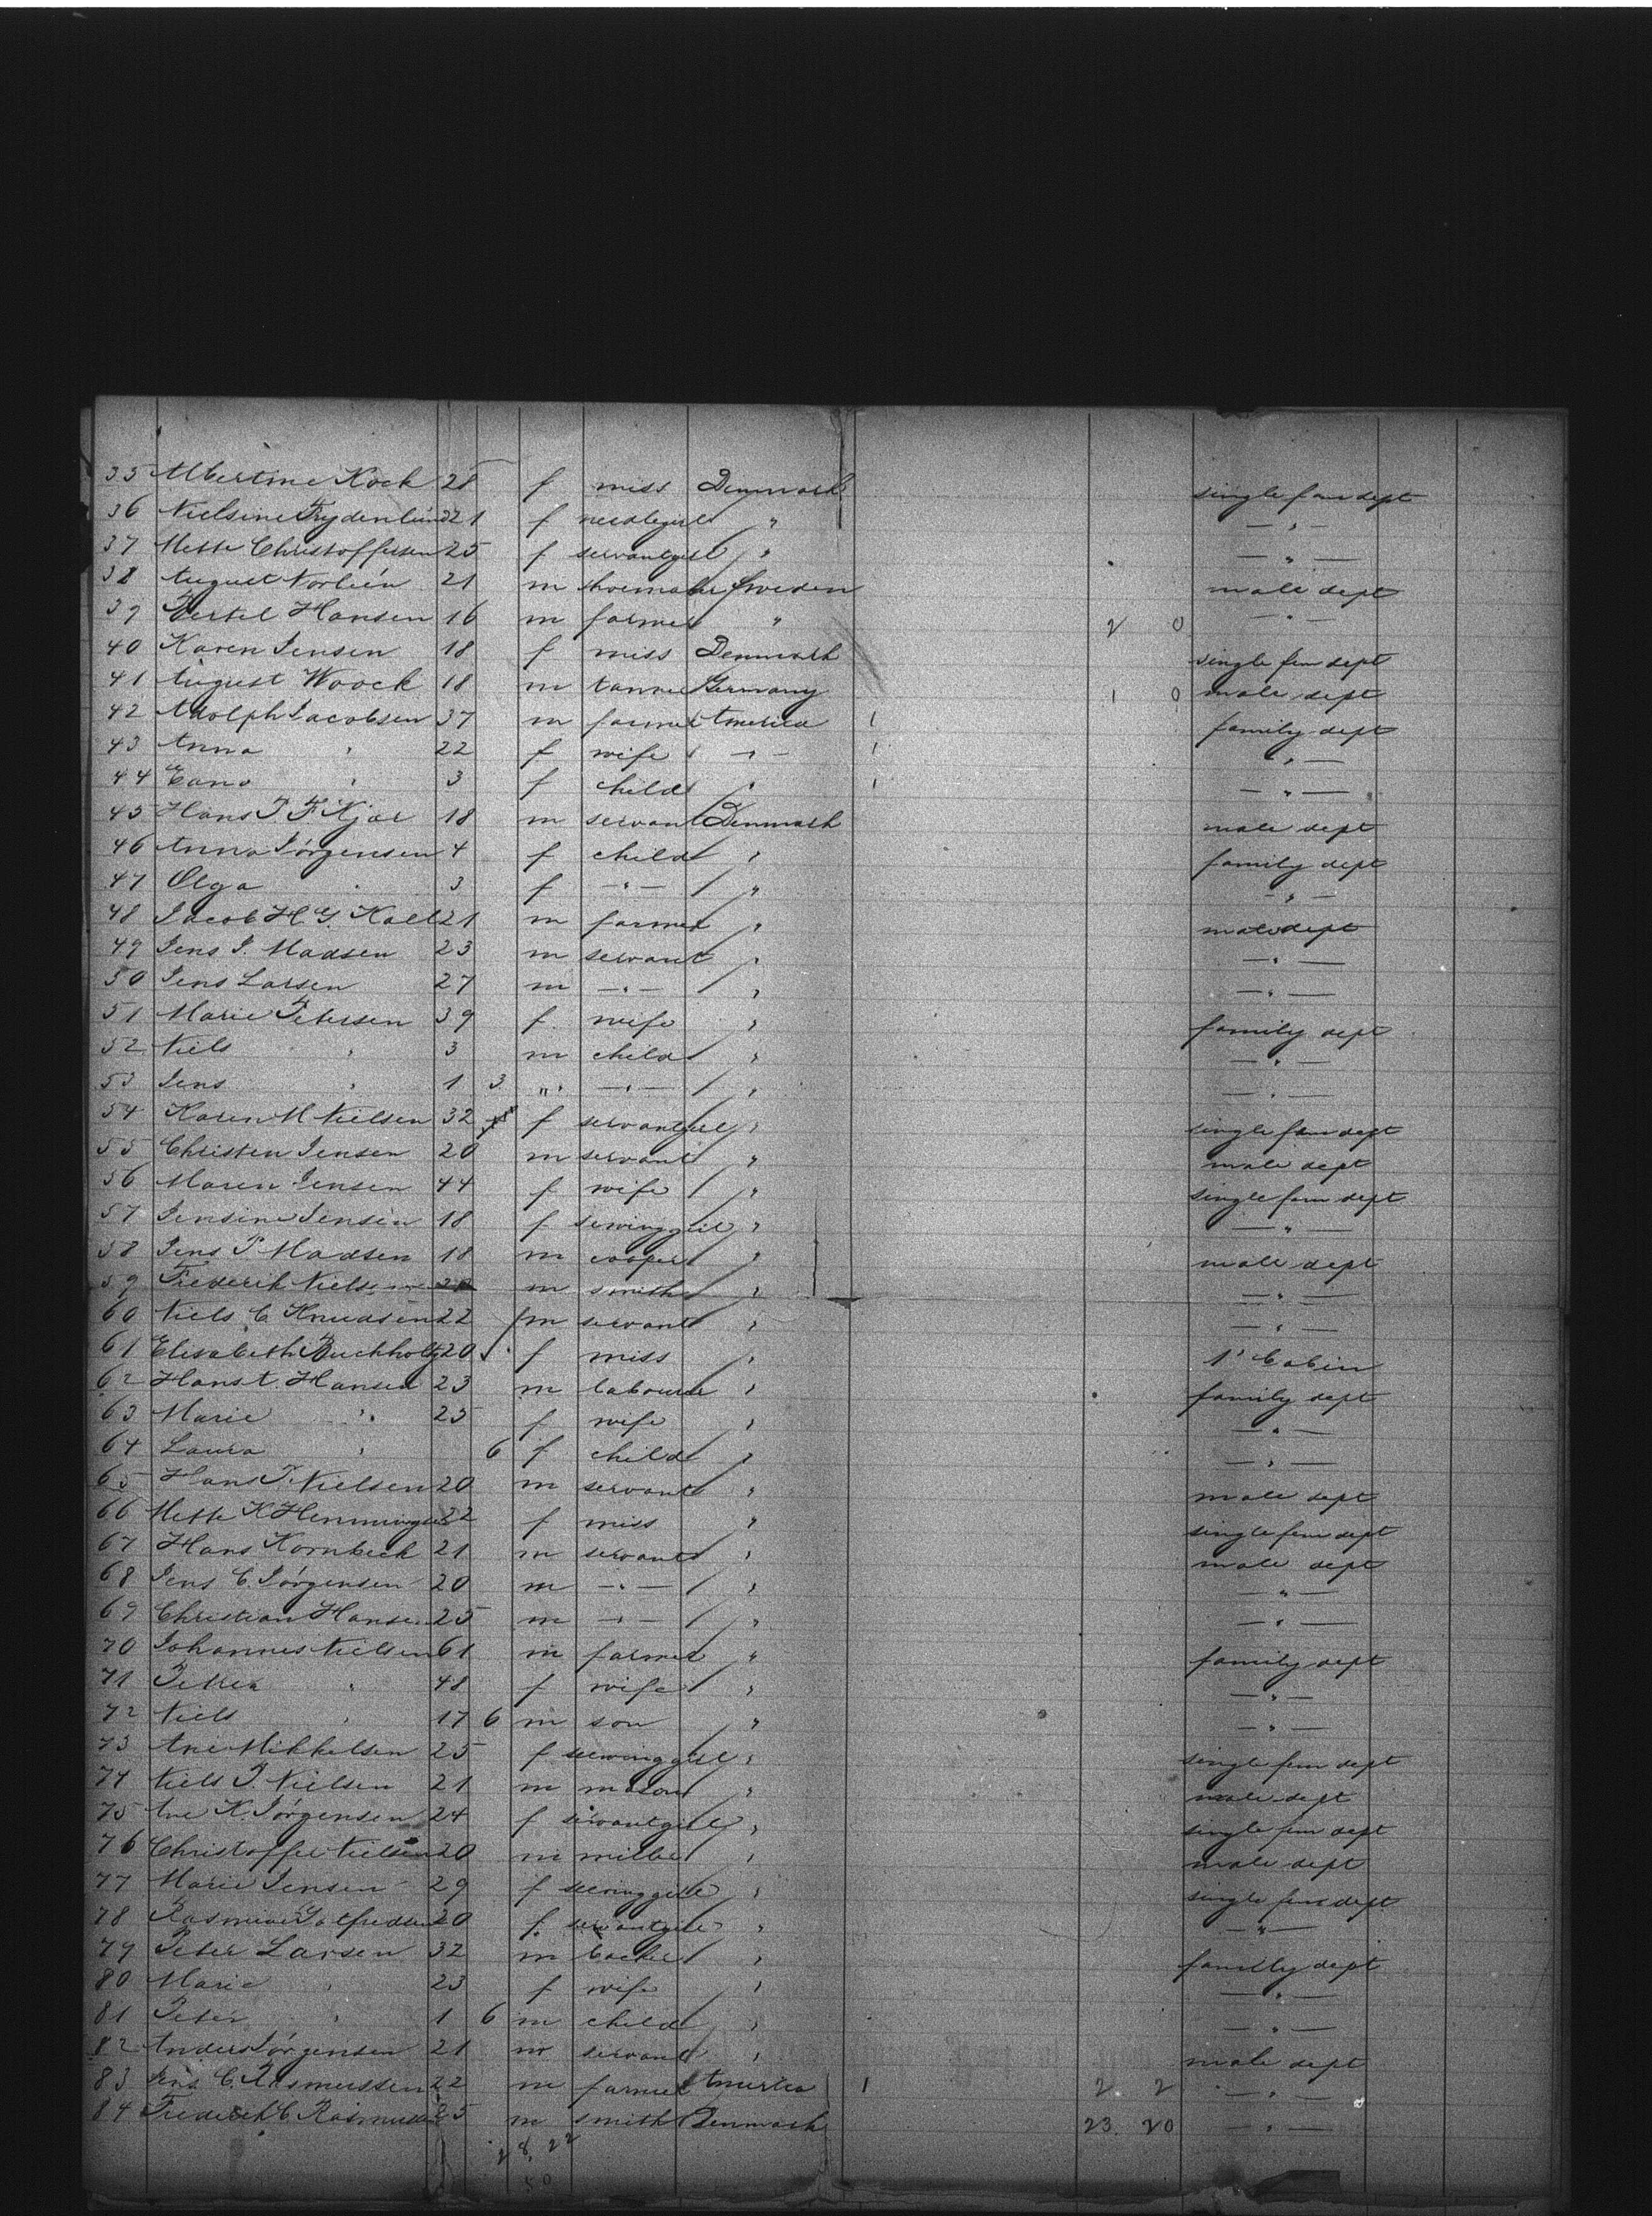 35 Albertine Kock 28 f miss Denmark single fem dept
36 Nielsine Frydenlund 21 f needlegirl " — " —
37 Mette Christoffersen 25 f servantgirl " — " —
38 August Norlién 21 m shoemaker Sweden male dept
39 Bertel Hansen 16 m farmer " 2 0 — " —
40 Karen Jensen 18 f miss Denmark single fem dept
41 August Woock 18 m tanner Germany 1 0 male dept
42 Adolph Jacobsen 37 m farmer America 1 family dept
43 Anna " 22 f wife — " — 1 — " —
44 " 3 f child " 1 — " —
45 Hans P F Kjær 18 m servant Denmark male dept
46 Anna Jørgensen 4 f child " family dept
47 Olga " 3 f — " — " — " —
48 Jacob H. G. 21 m farmer " male dept
49 Jens J. Madsen 23 m servant " — " —
50 Jens Larsen 27 m — " — " — " —
51 Marie Petersen 39 f. wife " family dept
52 Niels " 3 m child " — " —
53 Jens " 1 3 " — " — " — " —
54 Karen M Nielsen 32 f servantgirl " single fem dept
55 Christen Jensen 20 m servant " male dept
56 Maren Jensen 44 f wife " single fem dept
57 Jensine Jensen 18 f sewinggirl " — " —
58 Jens P Madsen 18 m cooper " male dept
59 Frederik Nielsen m smith " — " —
60 Niels C Knudsen 22 m servant " — " —
61 Elisabeth Buchholtz 20 f miss " 1' Cabin
62 Hans A. Hansen 23 m labourer " family dept
63 Marie " 25 f wife " — " —
64 Laura " 6 f child " — " —
65 Hans P. Nielsen 20 m servant " male dept
66 Mette K Henningsen 22 f miss " single fem dept
67 Hans Kornbeck 21 m servant " male dept
68 Jens C. Jørgensen 20 m — " — " — " —
69 Christian Hansen 25 m — " — " — " —
70 Johannes Nielsen 61 m farmer " family dept
71 Petrea " 48 f wife " — " —
72 Niels " 17 6 m son " — " —
73 Ane Mikkelsen 25 f sewinggirl " single fem dept
74 Niels P. Nielsen 21 m mason " male dept
75 Ane K. Jørgensen 24 f servantgirl " single fem dept
76 Christoffer Nielsen 20 m miller " male dept
77 Marie Jensen 29 f sewinggirl " single fem dept
78 Rasmine 20 f. servantgirl " — " —
79 Peter Larsen 32 m backer " familly dept
80 Marie " 23 f wife " — " —
81 Peter " 1 6 m child " — " —
82 Anders Jørgensen 21 m servant " male dept
83 Jens C. Rasmussen 22 m farmer America 1 2 2 — " —
84 Frederik C Rasmussen 25 m smith Denmark 23. 20 — " —
28. 22
50